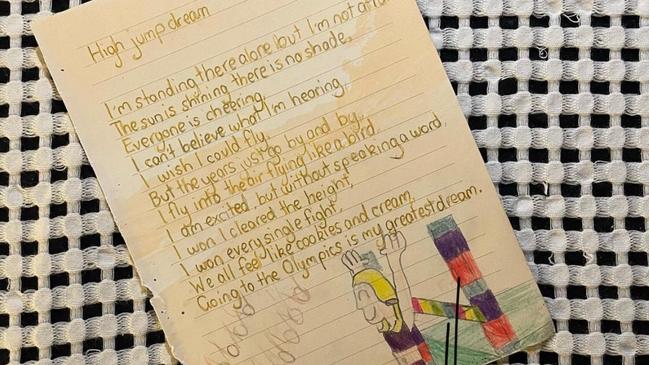 High jump dream
I'm standing there alone but I'm not afraid
The sun is shining there is no shade.
Everyone is cheering,
I can't believe what I'm hearing.
I wish I could fly,
But the years just go by and by.
I fly into the air flying like a bird,
am excited but without speaking a word.
I won I cleared the height,
I won every single fight,
We all feel like cookies and cream,
Going to the Olympics is my greatest dream.